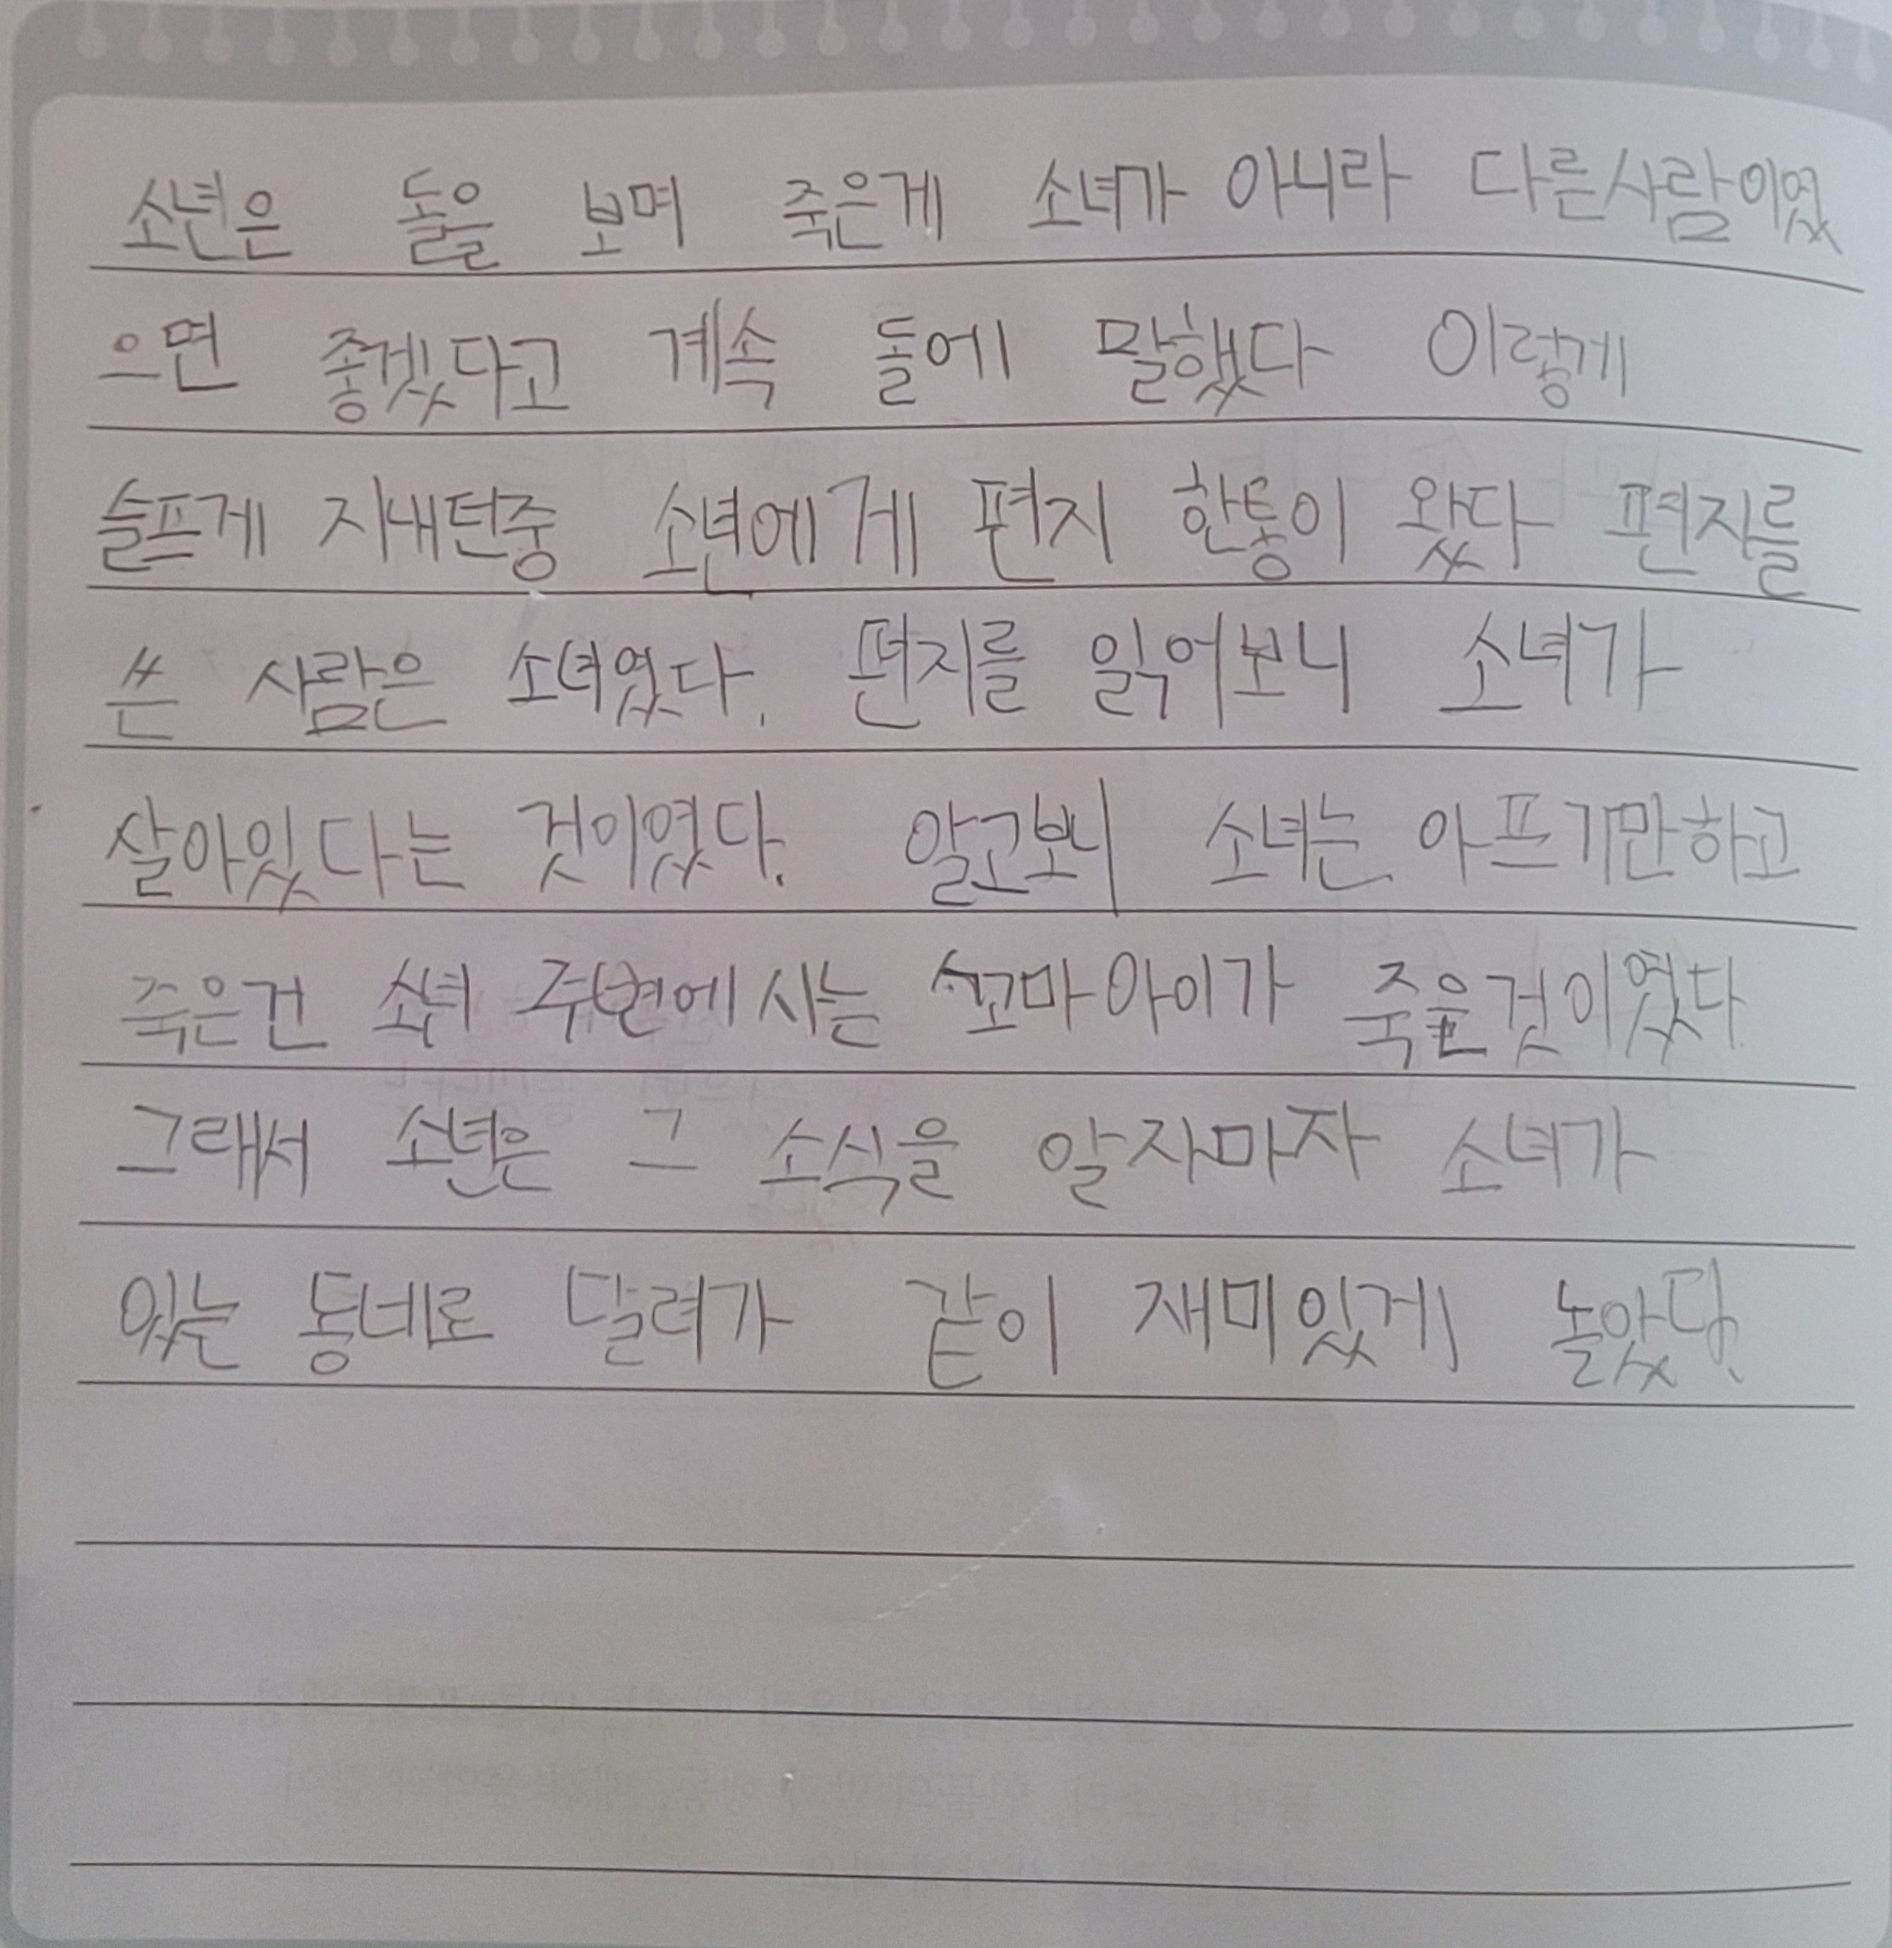 소년은 돌을 보며 죽은게 소녀가 아니라 다른사람이였
으면 좋겠다고 계속 돌에 말했다 이렇게
슬프게 지내던중 소년에게 편지 한통이 왔다 편지를
쓴 사람은 소녀였다. 편지를 읽어보니 소녀가
살아있다는 것이였다. 알고보니 소녀는 아프기만하고
죽은건 소녀 주변에 사는 꼬마아이가 죽은것이였다
그래서 소년은 그 소식을 알자마자 소녀가
있는 동네로 달려가 같이 재미있게 놀았다.